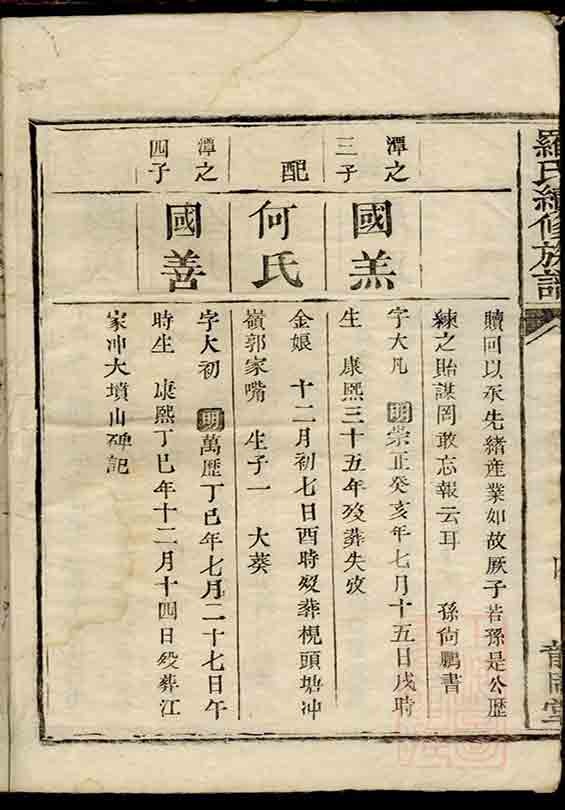 羅氏續修族譜
贖回以承先緒産業如故厥子若孫是公歷
練之貽謀罔敢忘報云耳 孫尙鵬書
潭之
三子
國羔
字大凡 明崇正癸亥年七月十五日戌時
生 康熙三十五年歿葬失攷
配
何氏
金娘 十二月初七日酉時歿葬枧頭塘冲
嶺郭家嘴 生子一 大葵
潭之
四子
國善
字大初 明萬歷丁巳年七月二十七日午
時生 康熙丁巳年十二月十四日歿葬江
家冲大墳山碑記